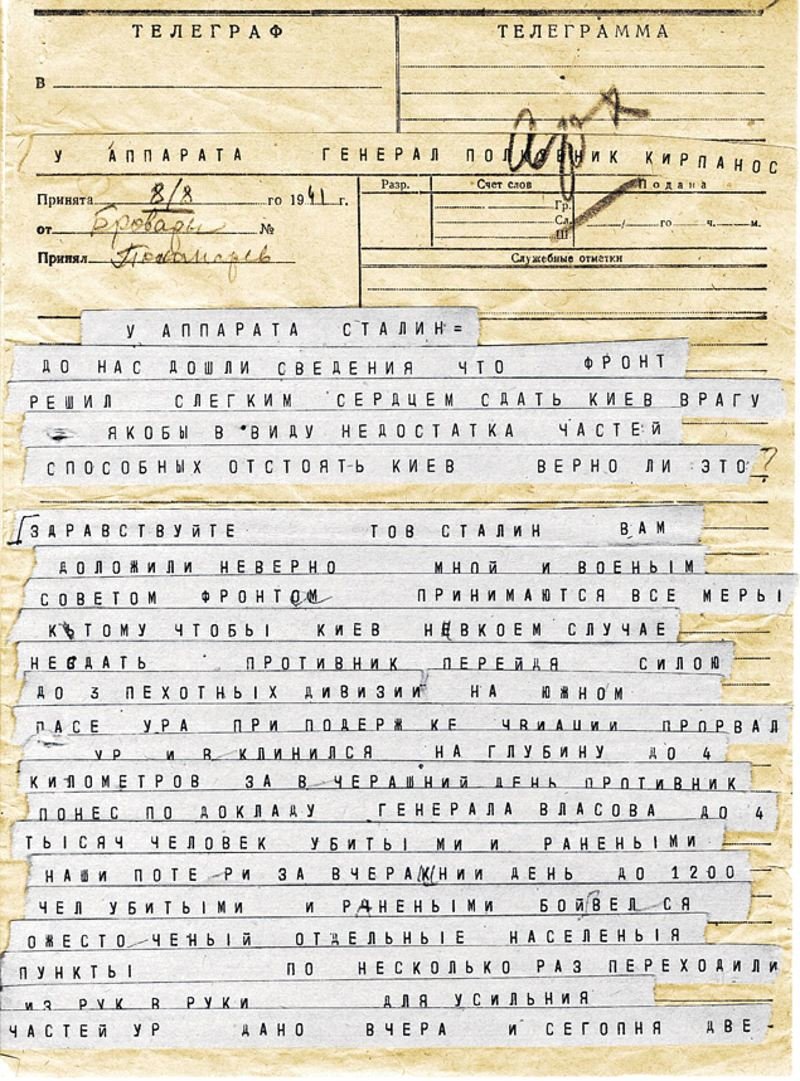 ТЕЛЕГРАФ
ТЕЛЕГРАММА
В
У АППАРАТА ГЕНЕРАЛ ПОЛКОВНИК КИРПАНОС
Принята 8/8 го 1941 г.
от Бровары №
Принял
Разр. Счет слов Подана
Гр.
Сл. / го ч. м.
Ш.
Служебные отметки
У АППАРАТА СТАЛИН=
ДО НАС ДОШЛИ СВЕДЕНИЯ ЧТО ФРОНТ
РЕШИЛ СЛЕГКИМ СЕРДЦЕМ СДАТЬ КИЕВ ВРАГУ
ЯКОБЫ В ВИДУ НЕДОСТАТКА ЧАСТЕЙ
СПОСОБНЫХ ОТСТОЯТЬ КИЕВ ВЕРНО ЛИ ЭТО?
ЗДРАВСТВУЙТЕ ТОВ СТАЛИН ВАМ
ДОЛОЖИЛИ НЕВЕРНО МНОЙ И ВОЕНЫМ
СОВЕТОМ ФРОНТОМ ПРИНИМАЮТСЯ ВСЕ МЕРЫ
К ТОМУ ЧТОБЫ КИЕВ НЕВКОЕМ СЛУЧАЕ
НЕСДАТЬ ПРОТИВНИК ПЕРЕЙДЯ СИЛОЮ
ДО 3 ПЕХОТНЫХ ДИВИЗИИ НА ЮЖНОМ
ПАСЕ УРА ПРИ ПОДЕРЖ КЕ ЧВИАЦИИ ПРОРВАЛ
УР И В КЛИНИЛСЯ НА ГЛУБИНУ ДО 4
КИЛОМЕТРОВ ЗА В ЧЕРАШНИЙ ДЕНЬ ПРОТИВНИК
ПОНЕС ПО ДОКЛАДУ ГЕНЕРАЛА ВЛАСОВА ДО 4
ТЫСЯЧ ЧЕЛОВЕК УБИТЫ МИ И РАНЕНЫМИ
НАШИ ПОТЕ РИ ЗА ВЧЕРА НИИ ДЕНЬ ДО 1200
ЧЕЛ УБИТЫМИ И РАНЕНЫМИ БОЙВЕЛ СЯ
ОЖЕСТО ЧЕНЫЙ ОТДЕЛЬНЫЕ НАСЕЛЕНЫЯ
ПУНКТЫ ПО НЕСКОЛЬКО РАЗ ПЕРЕХОДИЛИ
ИЗ РУК В РУКИ ДЛЯ УСИЛЬНИЯ
ЧАСТЕЙ УР ДАНО ВЧЕРА И СЕГОПНЯ ДВЕ-